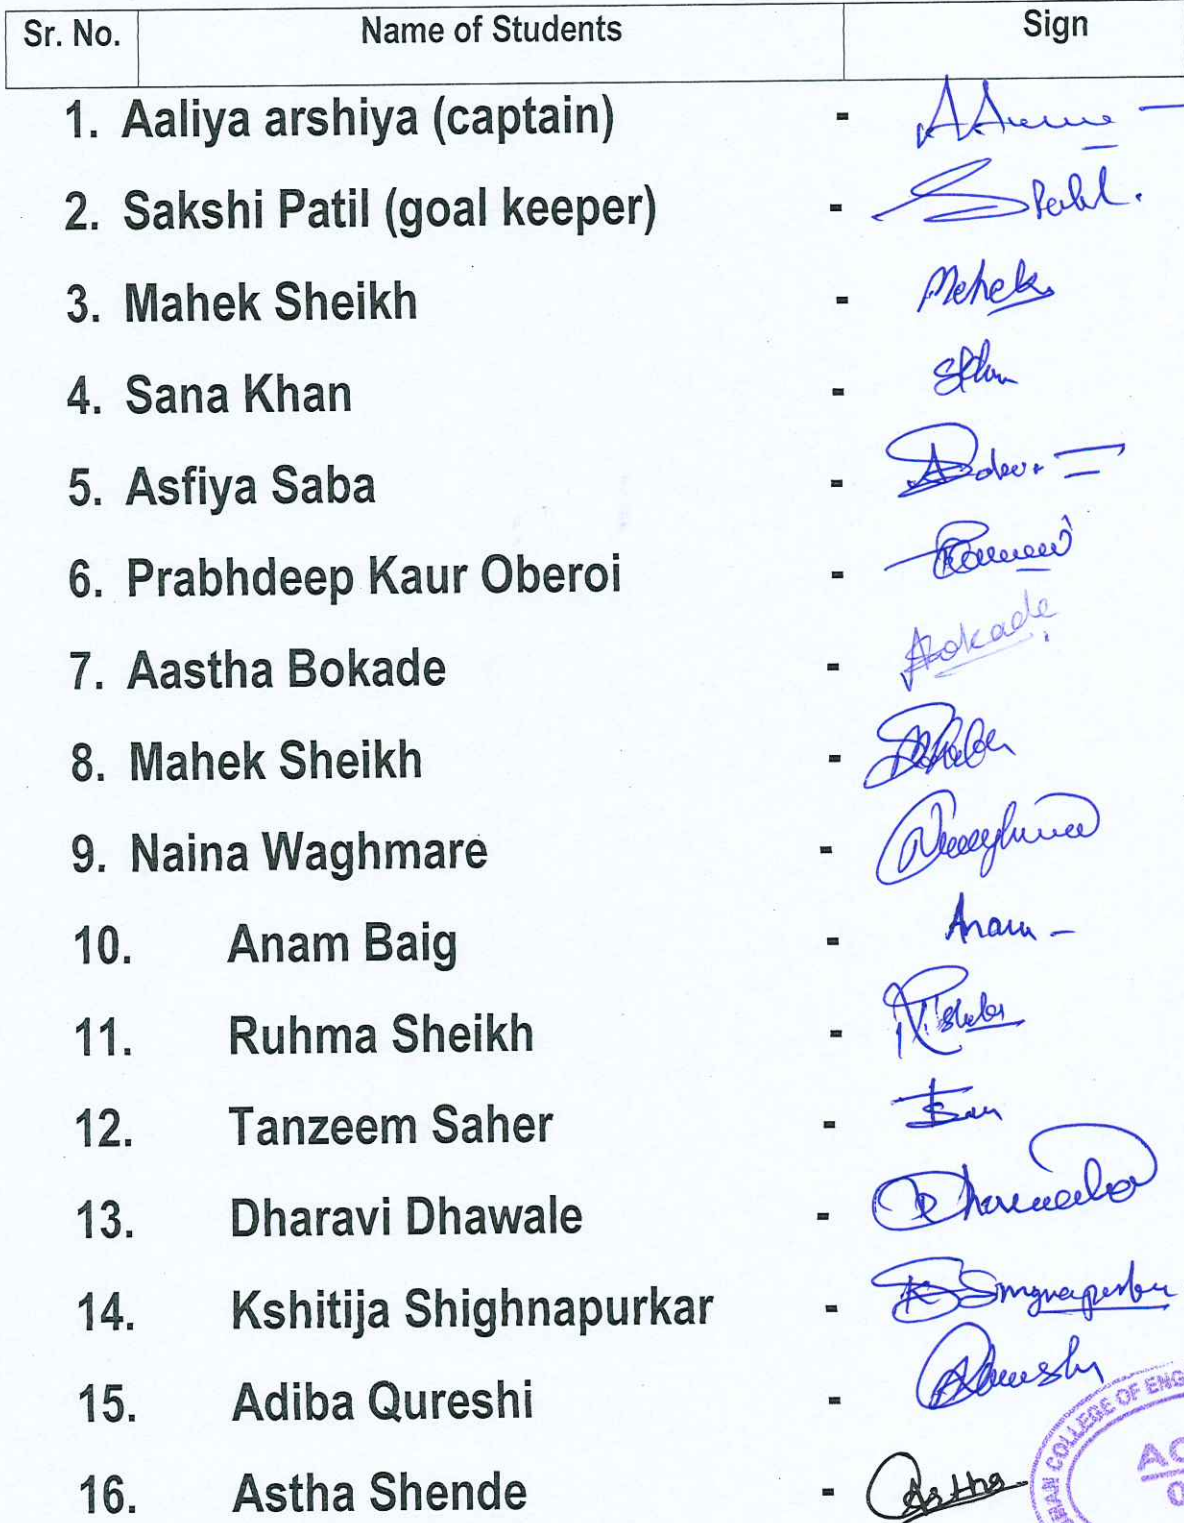 Sr. No. Name of Students Sign
1. Aaliya arshiya (captain) -
2. Sakshi Patil (goal keeper) - SPatil.
3. Mahek Sheikh - Mehek
4. Sana Khan -
5. Asfiya Saba -
6. Prabhdeep Kaur Oberoi -
7. Aastha Bokade - ABokade
8. Mahek Sheikh -
9. Naina Waghmare -
10. Anam Baig - Anam -
11. Ruhma Sheikh -
12. Tanzeem Saher -
13. Dharavi Dhawale -
14. Kshitija Shighnapurkar -
15. Adiba Qureshi -
16. Astha Shende - Astha
COLLEGE OF ENG